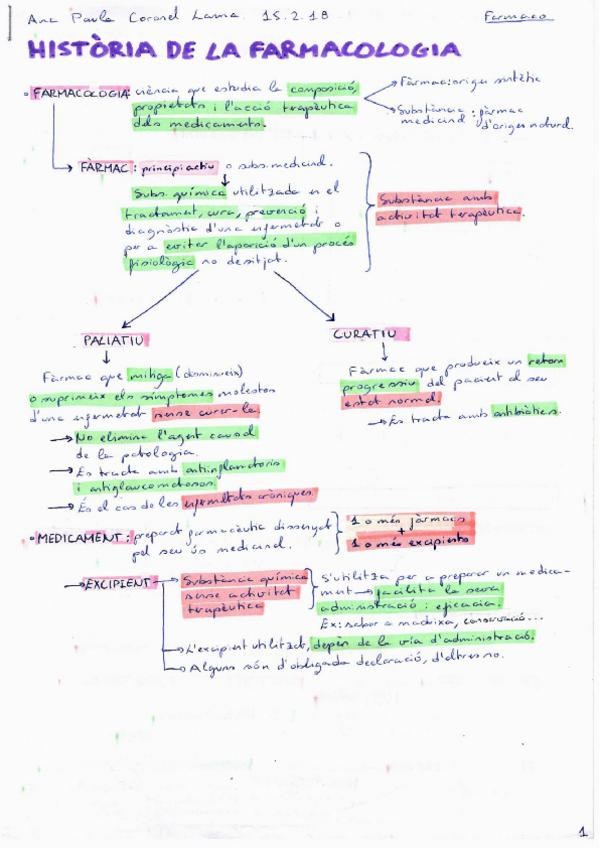 Ana Paula Coronel Lama. 15.2.18 Farmaco
HISTÒRIA DE LA FARMACOLOGIA
• FARMACOLOGIA: ciència que estudia la composició,
propietats i l'acció terapèutica
dels medicaments.
→ Fàrmac: origen sintètic
→ Substància medicinal: fàrmac
d'origen natural.
→ FÀRMAC: principi actiu o subs. medicinal.
Subs. química utilitzada en el
tractament, cura, prevenció i
diagnòstic d'una enfermetat o
per a evitar l'aparició d'un procés
fisiològic no desitjat.
Substància amb
activitat terapèutica.
PALIATIU
Fàrmac que mitiga (disminueix)
o suprimeix els símptomes molestos
d'una enfermetat sense curar-la.
→ No elimina l'agent causal
de la patologia.
→ Es tracta amb antiinflamatoris
i antiglaucomatosos.
→ És el cas de les enfermetats cròniques.
CURATIU
Fàrmac que produeix un retorn
progressiu del pacient al seu
estat normal.
→ Es tracta amb antibiòtics.
• MEDICAMENT: preparat farmacèutic dissenyat
pel seu ús medicinal.
1 o més fàrmacs
+
1 o més excipients
→ EXCIPIENT → Substància química
sense activitat
terapèutica
S'utilitza per a preparar un medica-
ment → facilita la seua
administració i eficàcia.
Ex: sabor a maduixa, conservació...
→ L'excipient utilitzat, depèn de la via d'administració.
→ Alguns són d'obligada declaració, d'altres no.
1